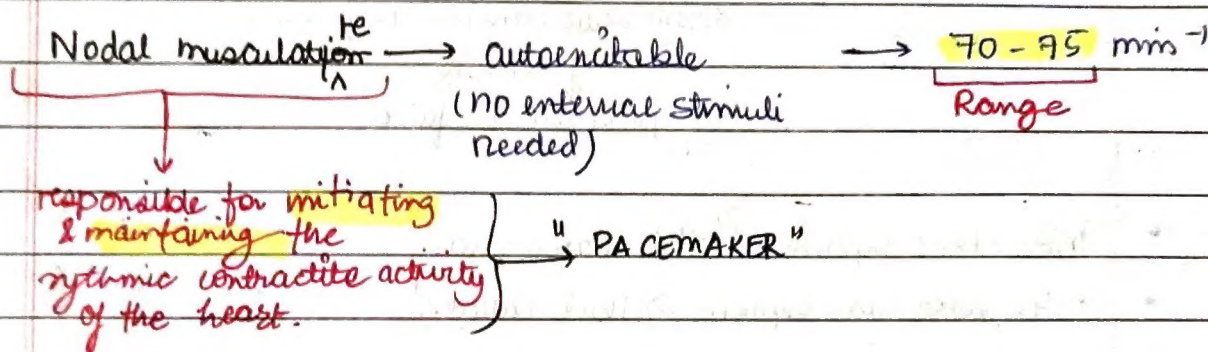 Nodal musculature → autoexcitable → 70 - 75 min⁻¹
(no external stimuli needed)
Range
responsible for initiating
& maintaining the
rythmic contractile activity
of the heart.
→ "PACEMAKER"